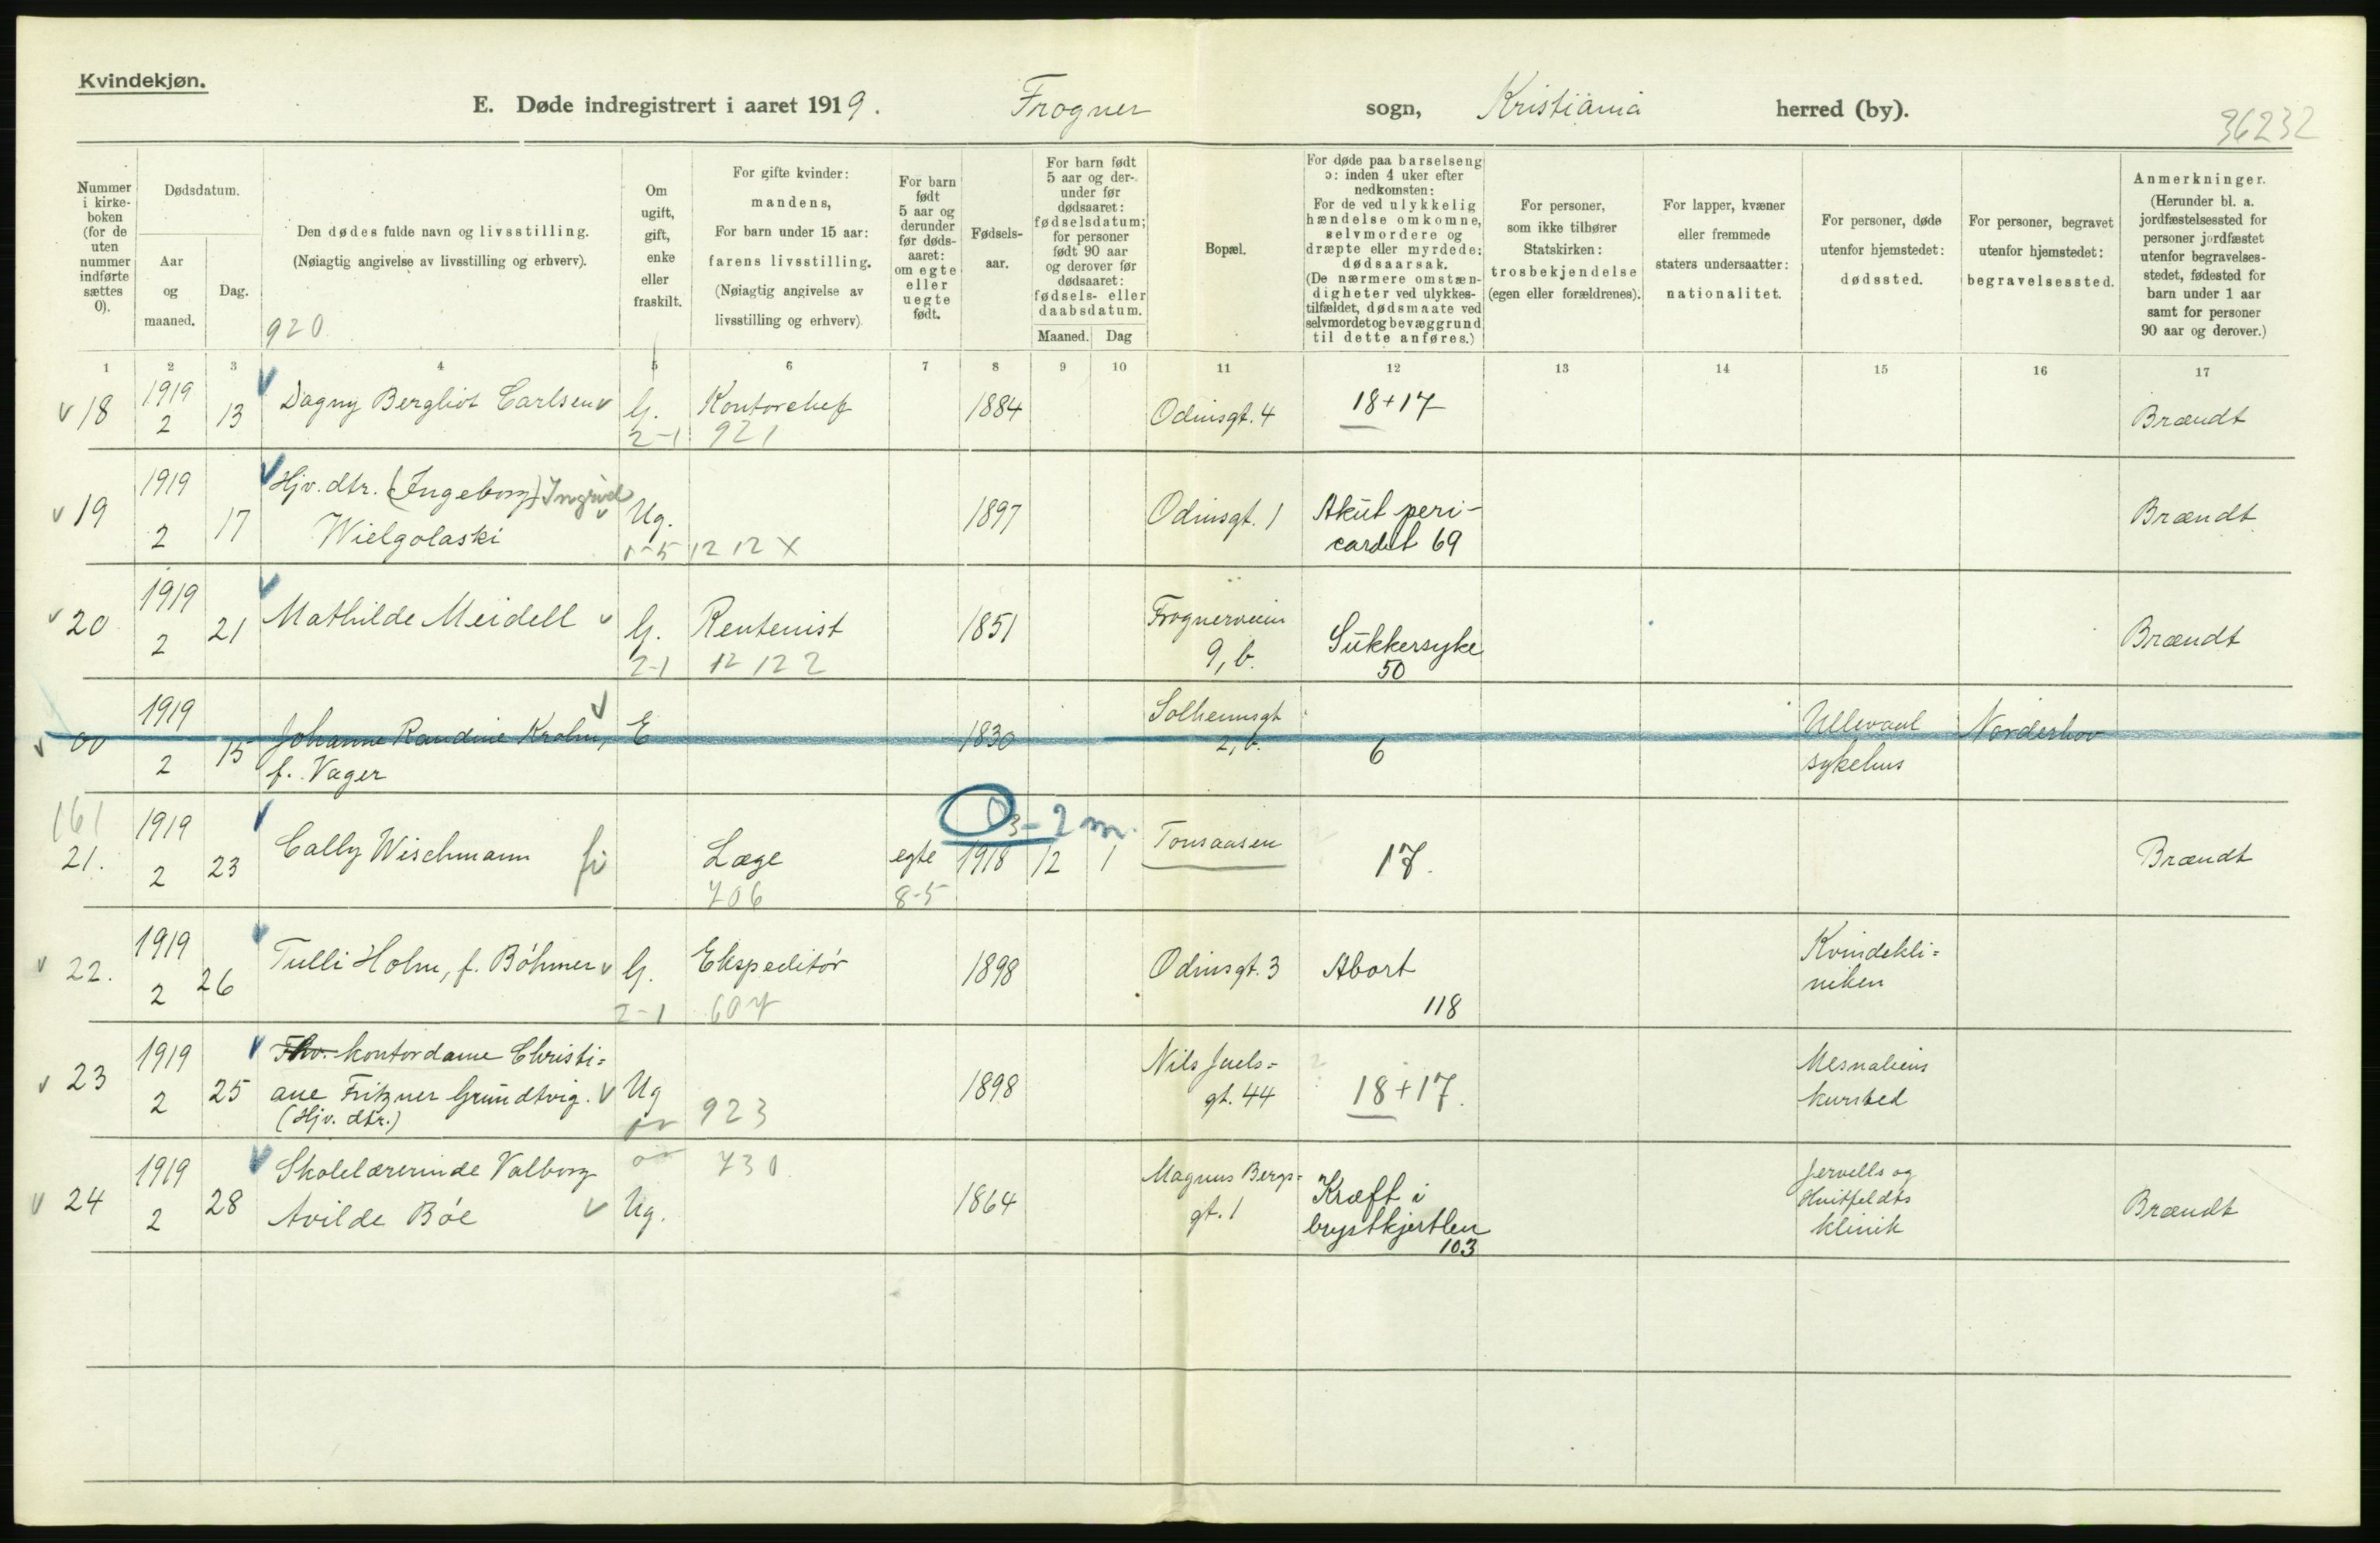 Kvindekjøn.
E. Døde indregistrert i aaret 1919. Frogner sogn, Kristiania herred (by).
36232
Nummer i kirke-boken (for de uten nummer indførte sættes 0).
Dødsdatum.
Aar og maaned.
Dag.
Den dødes fulde navn og livsstilling.
(Nøiagtig angivelse av livsstilling og erhverv).
920
Om ugift, gift, enke eller fraskilt.
For gifte kvinder: mandens,
For barn under 15 aar: farens livsstilling.
(Nøiagtig angivelse av livsstilling og erhverv).
For barn født 5 aar og derunder før døds-aaret: om egte eller uegte født.
Fødsels-aar.
For barn født 5 aar og der-under før dødsaaret: fødselsdatum; for personer født 90 aar og derover før dødsaaret: fødsels- eller daabsdatum.
Maaned. Dag
Bopæl.
For døde paa barselseng ɔ: inden 4 uker efter nedkomsten:
For de ved ulykkelig hændelse omkomne, selvmordere og dræpte eller myrdede: dødsaarsak.
(De nærmere omstæn-digheter ved ulykkes-tilfældet, dødsmaate ved selvmordet og bevæggrund til dette anføres.)
For personer, som ikke tilhører Statskirken: trosbekjendelse (egen eller forældrenes).
For lapper, kvæner eller fremmede staters undersaatter: nationalitet.
For personer, døde utenfor hjemstedet: dødssted.
For personer, begravet utenfor hjemstedet: begravelsessted.
Anmerkninger.
(Herunder bl. a. jordfæstelsessted for personer jordfæstet utenfor begravelses-stedet, fødested for barn under 1 aar samt for personer 90 aar og derover.)
1 2 3 4 5 6 7 8 9 10 11 12 13 14 15 16 17
18 1919 2 13 Dagny Bergliot Carlsen G. Kontorchef 1884 Odinsgt. 4 18+17 Brændt
2-1 921
19 1919 2 17 Hjv. dtr. (Ingeborg) Ingrid
Wielgolaski Ug. 1897 Odinsgt. 1 Akut peri-
cardit 69 Brændt
12 12 X
20 1919 2 21 Mathilde Meidell G. Rentenist 1851 Frognerveien
9, b. Sukkersyke
50 Brændt
2-1 12 12 2
00 1919 2 15 Johanne Randine Krohn,
f. Vager E 1830 Solheimsgt
2, b. 6 Ullevaal
sykehus Norderhov
161
21. 1919 2 23 Cally Wischmann Læge egte 1918 12 1 Tonsaasen 17. Brændt
706 8-5 3-2 m.
22. 1919 2 26 Tulli Holm, f. Böhmer G. Ekspeditör 1898 Odinsgt. 3 Abort
118 Kvindekli=
niken
2-1 607
23 1919 2 25 Fhv. kontordame Christi=
ane Fritzner Grundtvig.
(Hjv. dtr.) Ug 923 1898 Nils Juels=
gt. 44 18+17. Mesnaliens
kursted
24 1919 2 28 Skolelærerinde Valborg
Avilde Böe Ug. 730. 1864 Magnus Bergs=
gt. 1 Kræft i
brystkjertlen
103 Jervells og
Hvitfeldts
klinik Brændt